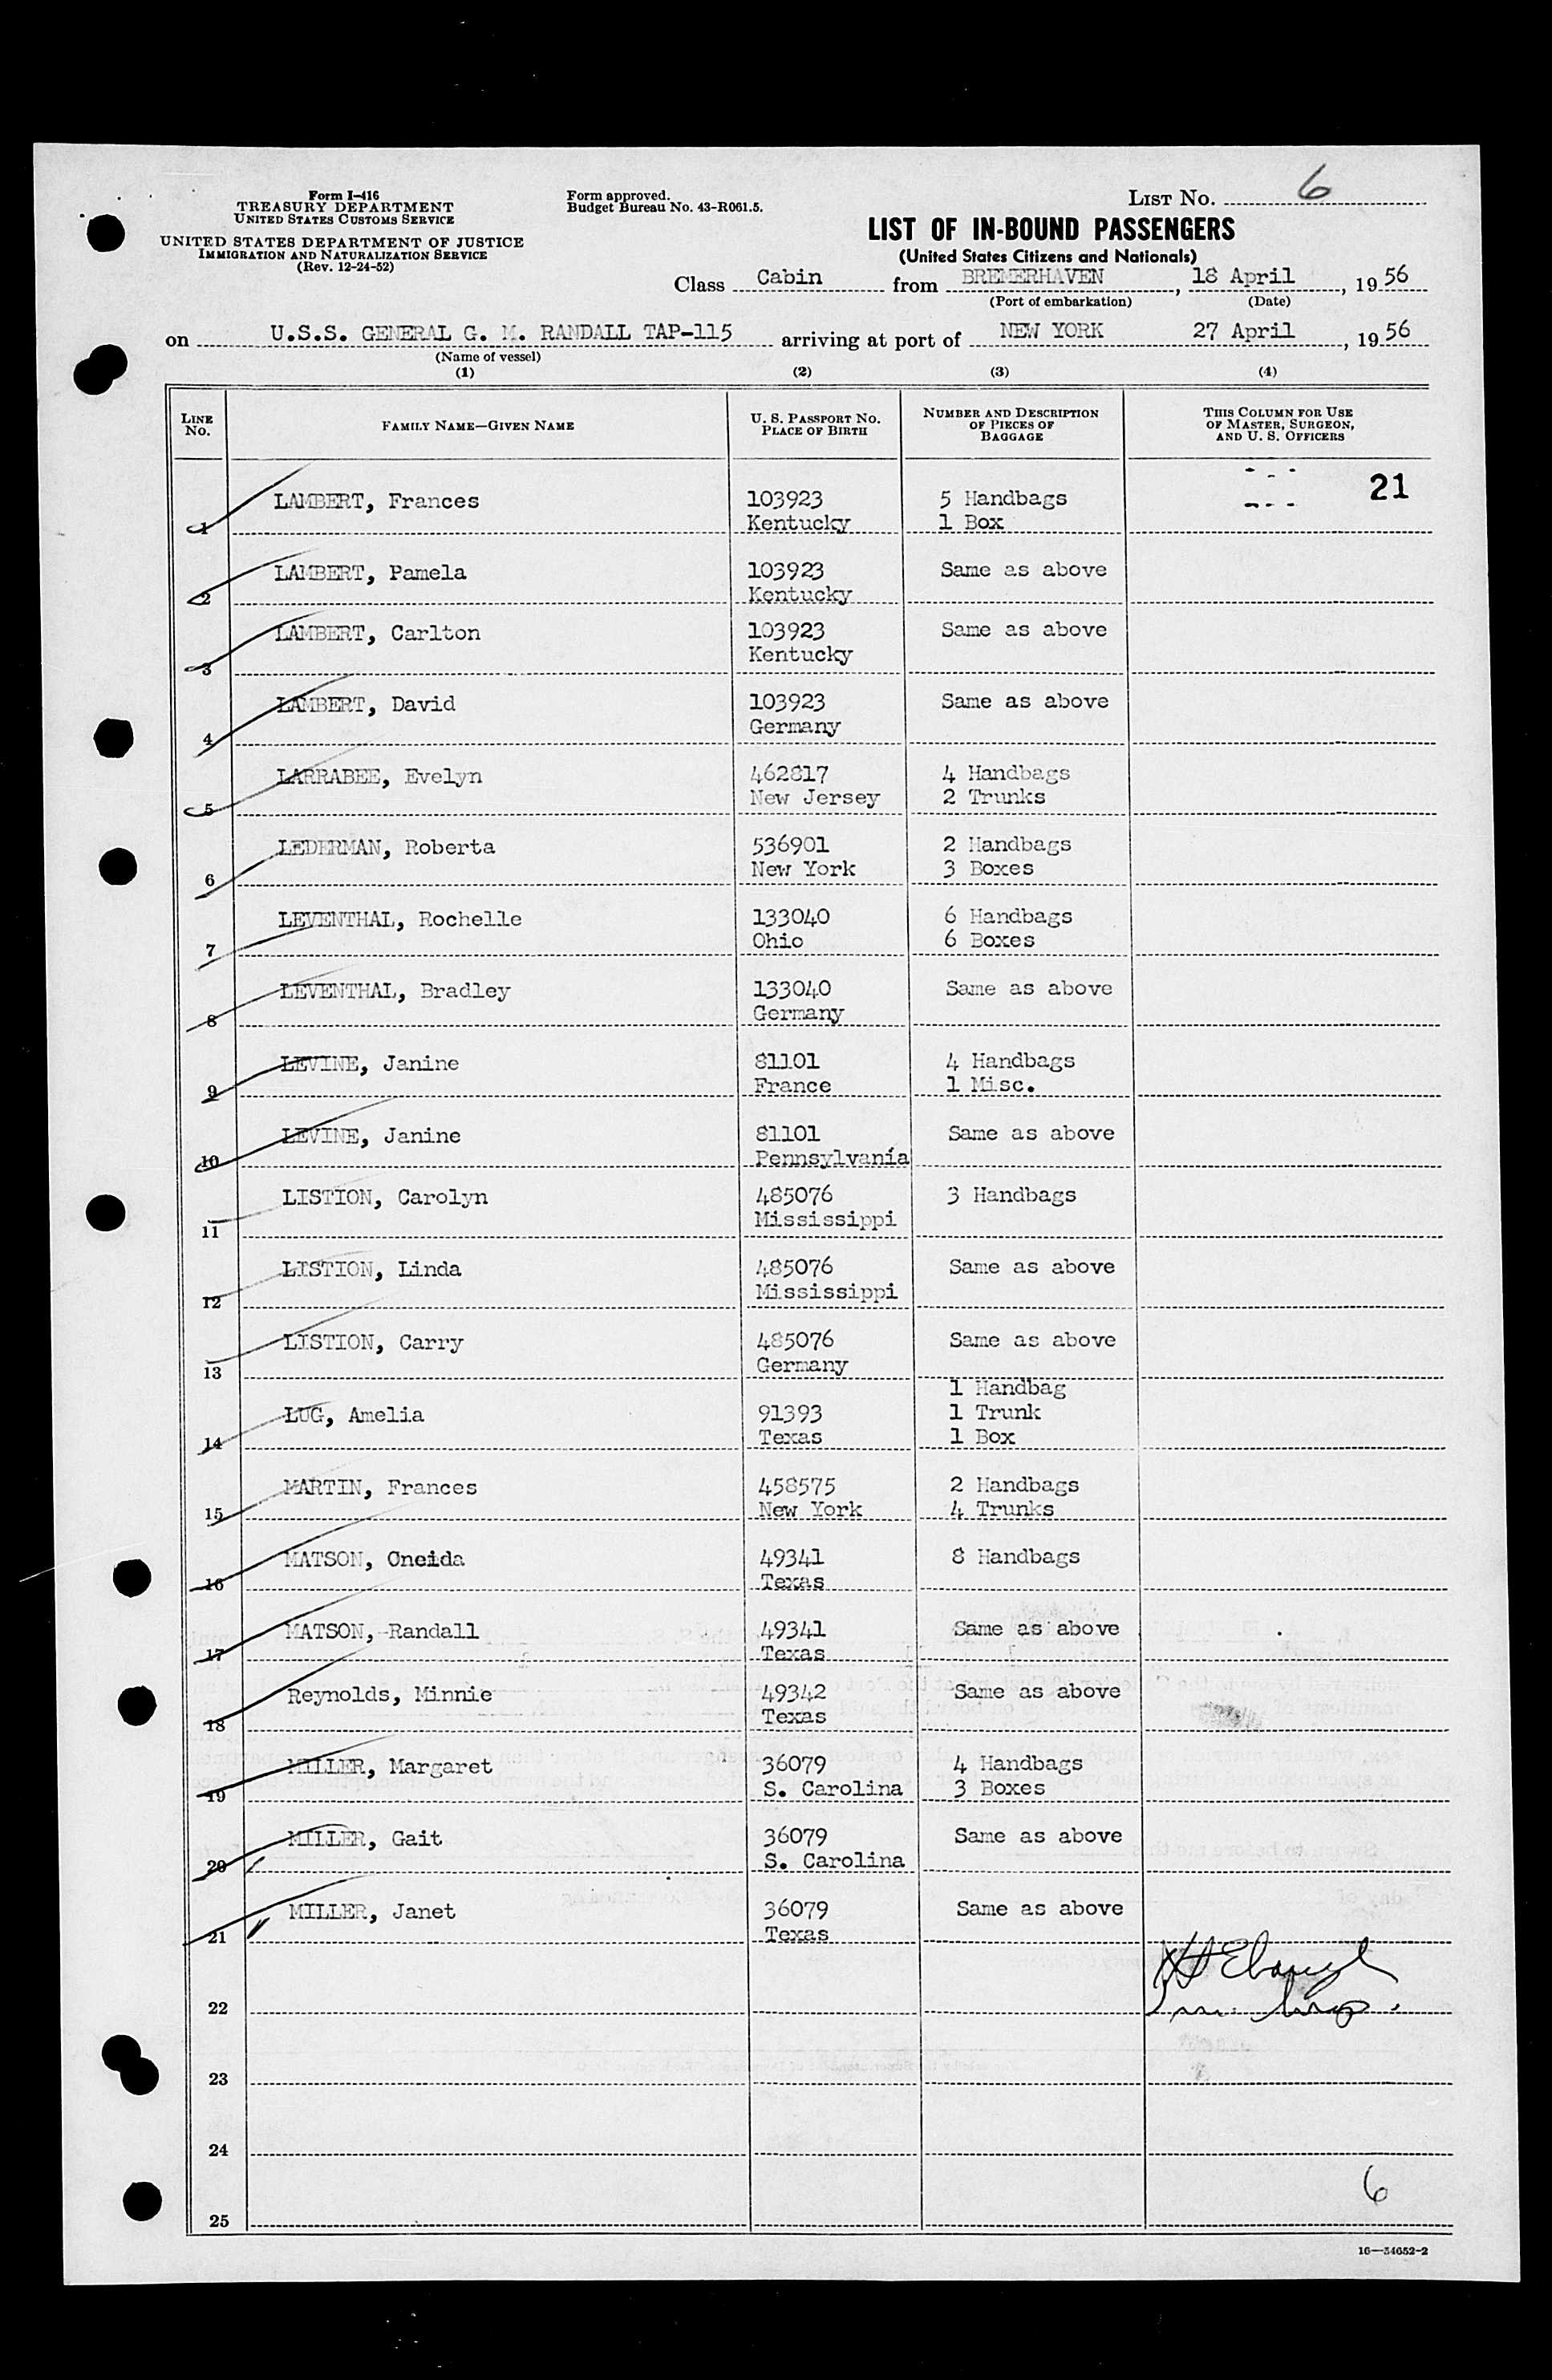 Form I-416
TREASURY DEPARTMENT
UNITED STATES CUSTOMS SERVICE
UNITED STATES DEPARTMENT OF JUSTICE
IMMIGRATION AND NATURALIZATION SERVICE
(Rev. 12-24-52)
Form approved.
Budget Bureau No. 43-R061.5.
LIST NO. 6
LIST OF IN-BOUND PASSENGERS
(United States Citizens and Nationals)
Class Cabin from BREMERHAVEN, 18 April, 1956
(Port of embarkation) (Date)
on U.S.S. GENERAL G. M. RANDALL TAP-115 arriving at port of NEW YORK 27 April, 1956
(Name of vessel)
(1) (2) (3) (4)
LINE NO. FAMILY NAME—GIVEN NAME U. S. PASSPORT NO. PLACE OF BIRTH NUMBER AND DESCRIPTION OF PIECES OF BAGGAGE THIS COLUMN FOR USE OF MASTER, SURGEON, AND U. S. OFFICERS
21
LAMBERT, Frances 103923 5 Handbags
1 Kentucky 1 Box
LAMBERT, Pamela 103923 Same as above
2 Kentucky
LAMBERT, Carlton 103923 Same as above
3 Kentucky
LAMBERT, David 103923 Same as above
4 Germany
LARRABEE, Evelyn 462817 4 Handbags
5 New Jersey 2 Trunks
LEDERMAN, Roberta 536901 2 Handbags
6 New York 3 Boxes
LEVENTHAL, Rochelle 133040 6 Handbags
7 Ohio 6 Boxes
LEVENTHAL, Bradley 133040 Same as above
8 Germany
LEVINE, Janine 81101 4 Handbags
9 France 1 Misc.
LEVINE, Janine 81101 Same as above
10 Pennsylvania
LISTION, Carolyn 485076 3 Handbags
11 Mississippi
LISTION, Linda 485076 Same as above
12 Mississippi
LISTION, Carry 485076 Same as above
13 Germany
1 Handbag
LUG, Amelia 91393 1 Trunk
14 Texas 1 Box
MARTIN, Frances 458575 2 Handbags
15 New York 4 Trunks
MATSON, Oneida 49341 8 Handbags
16 Texas
MATSON, Randall 49341 Same as above
17 Texas
Reynolds, Minnie 49342 Same as above
18 Texas
MILLER, Margaret 36079 4 Handbags
19 S. Carolina 3 Boxes
MILLER, Gait 36079 Same as above
20 S. Carolina
MILLER, Janet 36079 Same as above
21 Texas
22
23
24
6
25
16—54652-2